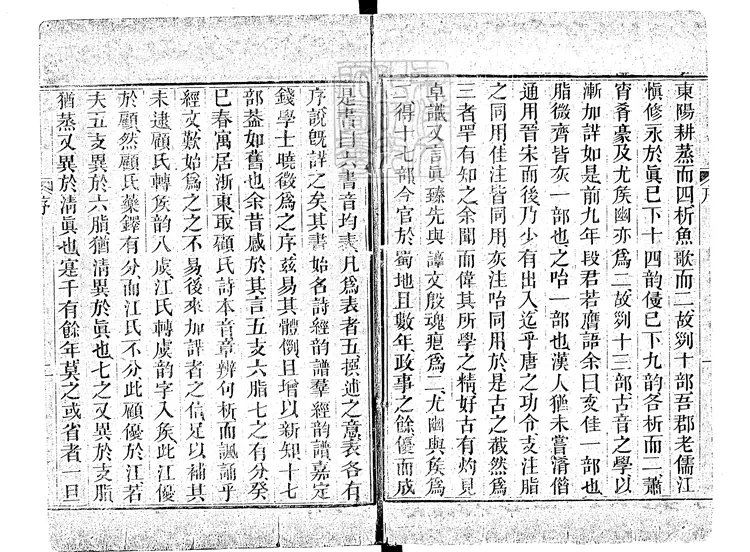 東陽耕蒸而四析魚歌而二故列十部吾郡老儒江
愼修永於眞已下十四韵侵已下九韵各析而二蕭
宵肴豪及尤矦幽亦爲二故列十三部古音之學以
漸加詳如是前九年段君若膺語余曰支佳一部也
脂微齊皆灰一部也之咍一部也漢人猶未嘗淆借
通用晉宋而後乃少有出入迄乎唐之功令支注脂
之同用佳注皆同用灰注咍同用於是古之截然爲
三者罕有知之余聞而偉其所學之精好古有灼見
卓識又言眞臻先與諄文殷魂痕爲二尤幽與矦爲
二得十七部今官於蜀地且數年政事之餘優而成
是書曰六書音均表凡爲表者五撰述之意表各有
序說旣詳之矣其書始名詩經韵譜羣經韵譜嘉定
錢學士曉徵爲之序茲易其體例且增以新知十七
部葢如舊也余昔感於其言五支六脂七之有分癸
巳春寓居浙東取顧氏詩本音章辨句析而諷誦乎
經文歎始爲之之不易後來加詳者之信足以補其
未逮顧氏轉矦韵入虞江氏轉虞韵字入矦此江優
於顧然顧氏藥鐸有分而江氏不分此顧優於江若
夫五支異於六脂猶淸異於眞也七之又異於支脂
猶蒸又異於淸眞也寔千有餘年莫之或省者一旦
序